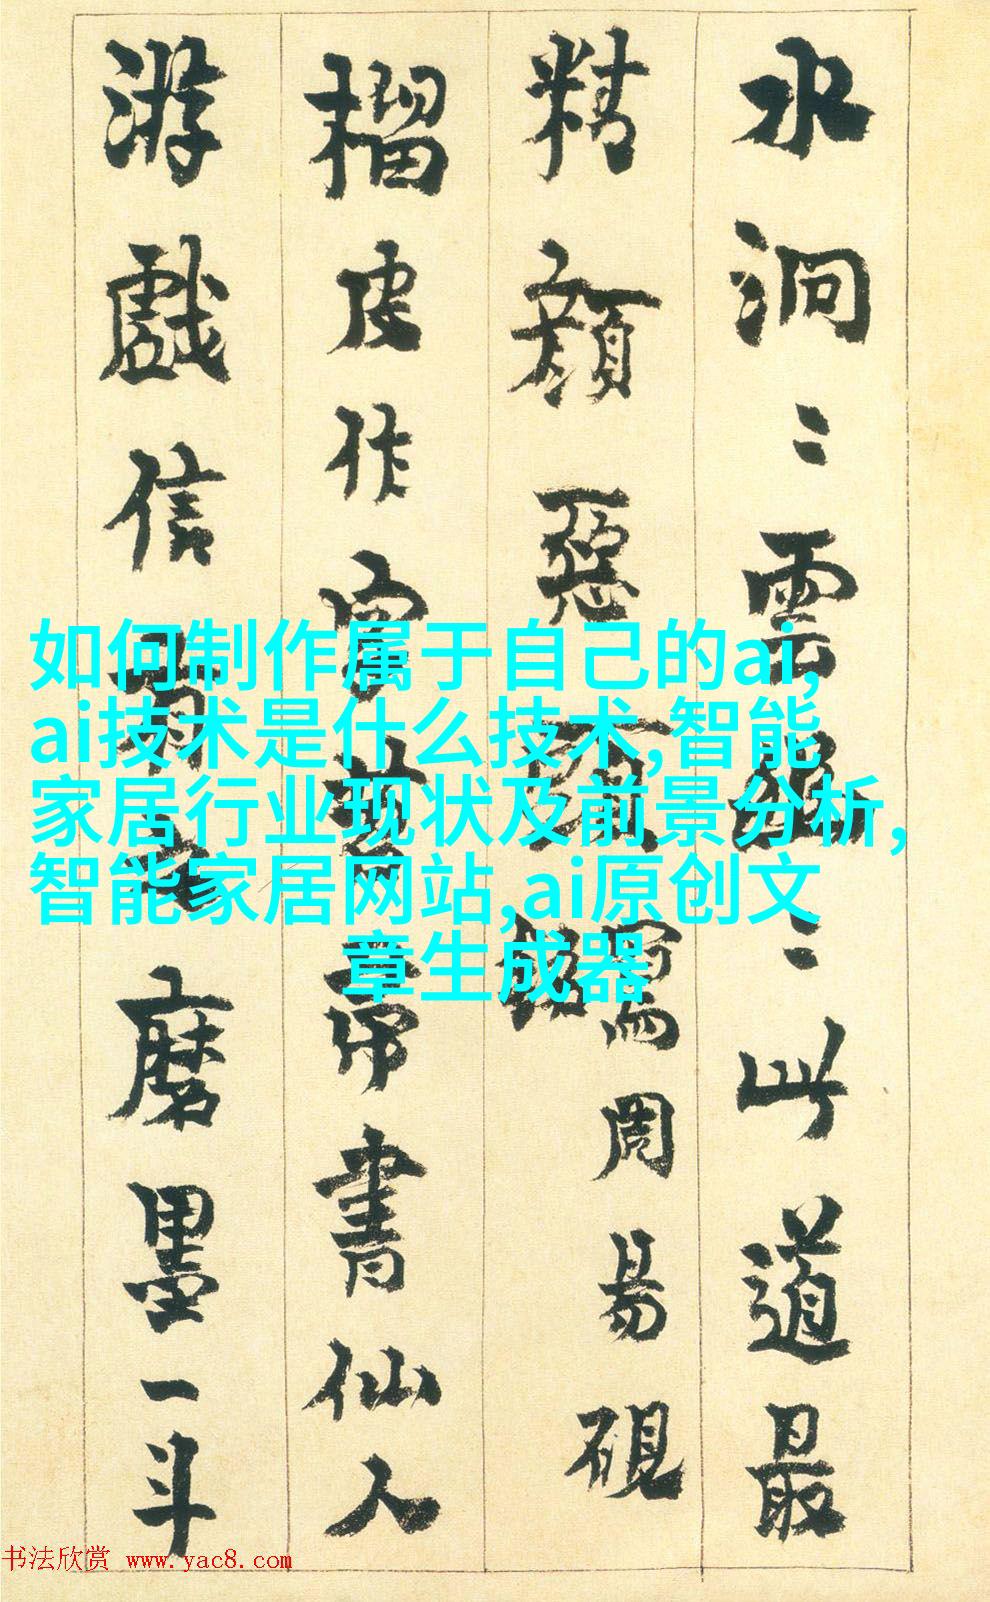 水洞〻雲綿〻此道最
精顏惡頭銘寫周易硯
榴皮作字苔帚書仙人
游戲信磨墨一斗
如何制作属于自己的ai,
ai技术是什么技术,智能
家居行业现状及前景分析,
智能家居网站,ai原创文
章生成器
书法欣赏 www.yac8.com